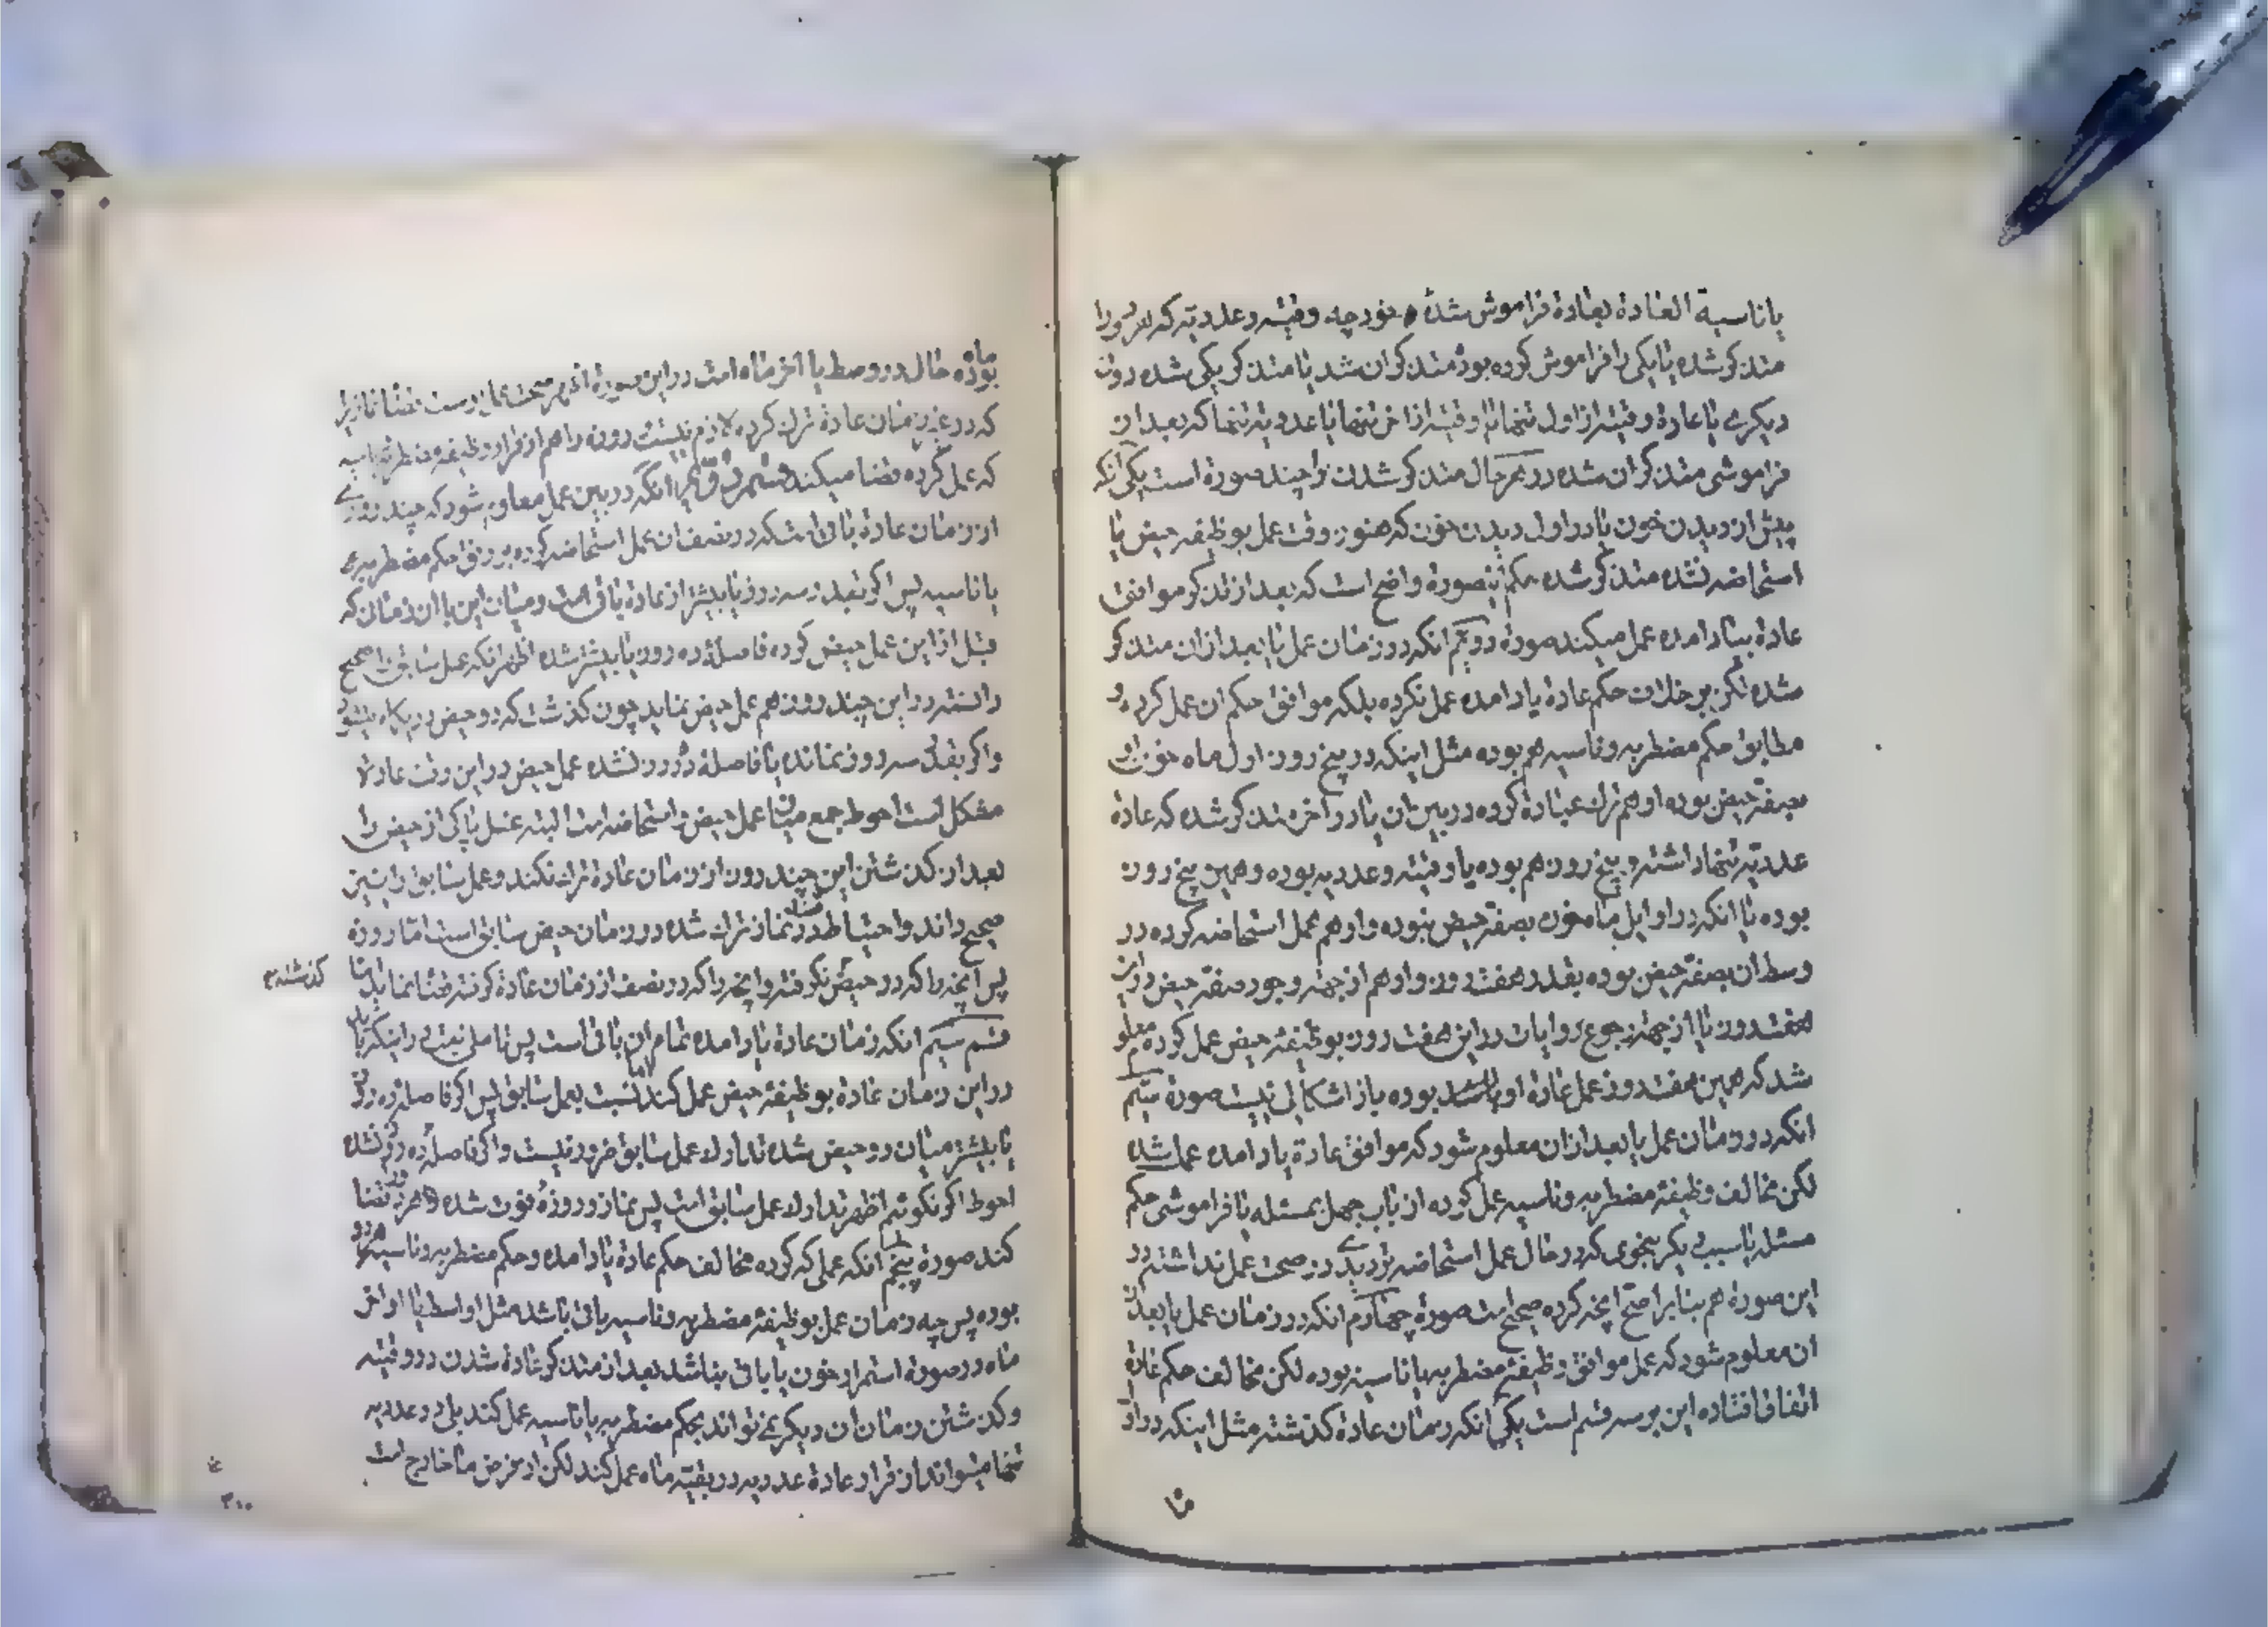 یا ناسیة العادة بعادة فراموش شده خود چه وقتیه و عددیه که هر دو را
متذکر شده یا یکی را فراموش کرده بود متذکر ان شد یا متذکر یکی شده دون
دیگری یا عادة وقتیه از اول تنها یا وقتیه از اخر تنها یا عددیه تنها که بعد از
فراموشی متذکر ان شده در هر حال متذکر شدن را چند صورة است یکی انکه
پیش از دیدن خون یا در اول دیدن خون که هنوز وقت عمل بوظیفه حیض یا
استحاضه نشده متذکر شده حکم اینصورة واضح است که بعد از تذکر موافق
عادة بیاد امده عمل میکند صورة دویم انکه در زمان عمل یا بعد از ان متذکر
شده لکن بر خلاف حکم عادة یاد امده عمل نکرده بلکه موافق حکم ان عمل کرده و
مطابق حکم مضطربه و ناسیه هم بوده مثل اینکه در پنج روز اول ماه خون
بصفة حیض بوده او هم ترک عبادة کرده در بین ان یا در اخر متذکر شده که عادة
عددیه تنها داشته و پنج روز هم بوده یا وقتیه و عددیه بوده و همین پنج روز
بوده یا انکه در اوایل ماه خون بصفة حیض نبوده و او هم عمل استحاضه کرده در
وسط ان بصفة حیض بوده بقدر هفت روز و او هم از جهة وجود صفة حیض در این
هفت روز یا از جهة رجوع روایات در این هفت روز بوظیفه حیض عمل کرده معلوم
شد که همین هفت روز عمل عادة او بوده باز اشکالی نیست صورة سیم
انکه در زمان عمل یا بعد از ان معلوم شود که موافق عادة یاد امده عمل شده
لکن مخالف وظیفه مضطربه و ناسیه عمل کرده از باب جهل بمسئله یا فراموشی حکم
مسئله یا سبب دیگر بنحوی که در حال عمل استحاضه تردیدی در صحت عمل نداشته در
این صورة هم بنابر اصح انچه کرده صحیح است صورة چهارم انکه در زمان عمل یا بعد از
ان معلوم شود که عمل موافق وظیفه مضطربه یا ناسیه بوده لکن مخالف حکم عادة
اتفاق افتاده این بر سه قسم است یکی انکه زمان عادة گذشته مثل اینکه در اول
ماه
بوده حال در وسط یا اخر ماه است در این صورة اظهر صحت عمل است قضا نماز
که در غیر زمان عادة ترک کرده لازم نیست روزه را هم از قرار وظیفه مضطربه یا ناسیه
که عمل کرده قضا میکند قسم دویم انکه در بین عمل معلوم شود که چند روزی
از زمان عادة باقی است که در نصف ان عمل استحاضه کرده بر وفق حکم مضطربه
یا ناسیه پس اگر بقدر سه روز یا بیشتر از عادة باقی است و میان این با ان زمانی که
قبل از این عمل حیض کرده فاصله ده روز یا بیشتر شده اظهر انکه عمل سابق را صحیح
دانسته در این چند روز هم عمل حیض نماید چون گذشت که دو حیض در یک ماه میشود
و اگر بقدر سه روز نمانده یا فاصله ده روز نشده عمل حیض در این وقت عادة
مشکل است احوط جمع میان عمل حیض و استحاضه است البته غسل پاکی از حیض را
بعد از گذشتن این چند روز از زمان عادة ترک نکند و عمل سابق را نیز
صحیح داند و احتیاط در نماز ترک شده در زمان حیض سابق است اما روزه
گذشته
پس انچه را که در حیض نگرفته و انچه را که در نصف از زمان عادة گرفته قضا نماید
قسم سیم انکه زمان عادة یاد امده تمام ان باقی است پس تاملی نیست در اینکه باید
در این زمان عادة بوظیفه حیض عمل کند اما نسبت بعمل سابق پس اگر فاصله ده روز
یا بیشتر میان دو حیض شده تدارک عمل سابق ضرور نیست و اگر فاصله ده روز نشده
احوط اگر نگوئیم اظهر تدارک عمل سابق است پس نماز و روزه فوت شده را قضا
کند صورة پنجم انکه عملی که کرده مخالف حکم عادة یاد امده و حکم مضطربه و ناسیه هر دو
بوده پس چه زمان عمل بوظیفه مضطربه و ناسیه باقی باشد مثل اواسط یا اواخر
ماه در صورة استمرار خون یا باقی نباشد بعد از متذکر عادة شدن در وقتیه
و گذشتن زمان ان دیگر نمی تواند بحکم مضطربه یا ناسیه عمل کند بلی در عددیه
تنها میتواند از قرار عادة عددیه در بقیه ماه عمل کند لکن از فرض ما خارج است